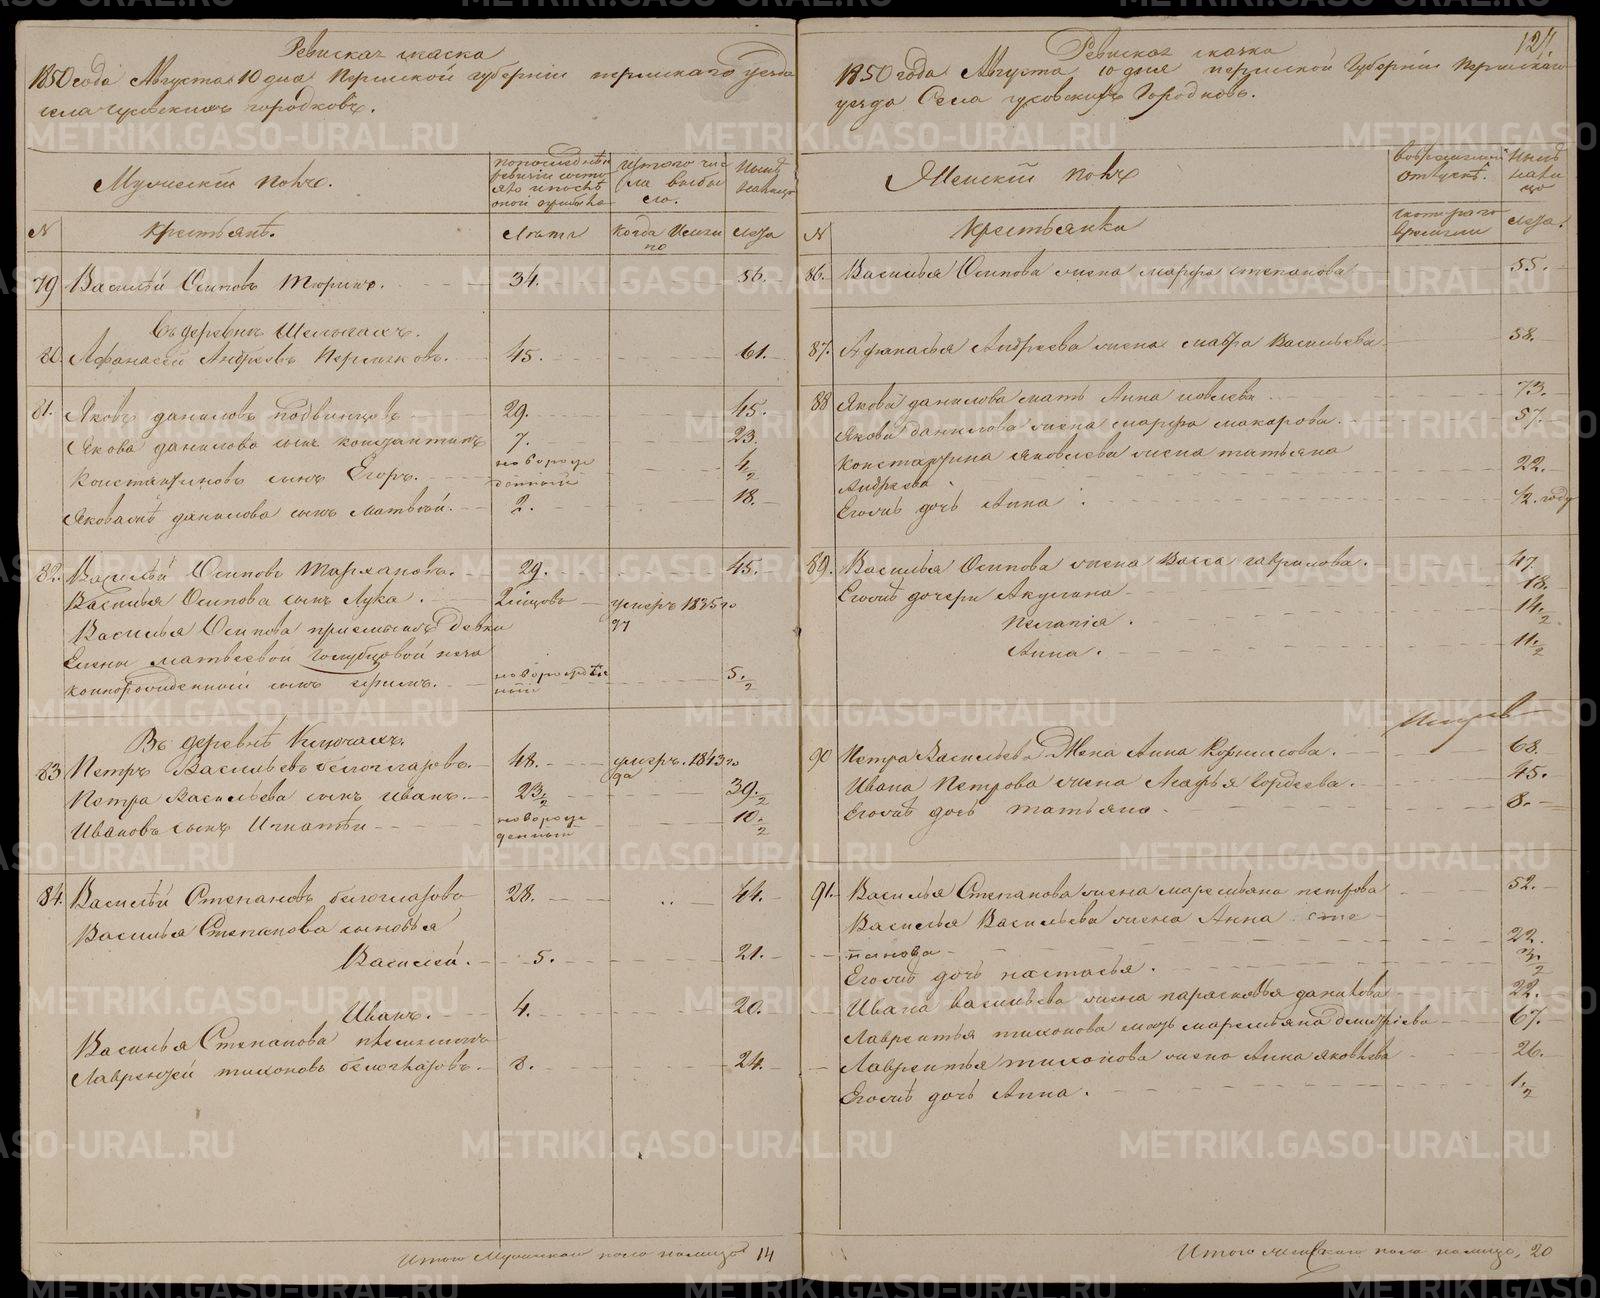 Ревизская сказка
1850 года Августа 10 дня Пермской губернии пермскаго уезда
села чусовскихъ городковъ.
Мужескій полъ.
по последней ревизіи состояло и после оной прибыло
Изъ того числа выбыло.
Ныне на лицо
N
Крестьяне.
Лета
Когда именно
лета
79 Василій Осиповъ Тюринъ. 34. 56.
Въ деревне
80. Афанасей Андреевъ 45. 61.
81. Яковъ даниловъ Подвинцовъ 29. 45.
Якова данилова сынъ константинъ 7. 23.
константиновъ сынъ Егоръ. новорожденный 4/2
Якова данилова сынъ Матвей. 2. 18.
82. Василей Осиповъ Тархановъ. 29. 45.
Василья Осипова сынъ Лука. умеръ 1835 го
Василья Осипова приемышъ девки
Елены матвеевой Голубцовой
сынъ новорожденный 5./2
Въ деревне Ключахъ.
83 Петръ Васильевъ белоглазовъ. 48. умеръ. 1843 го
да
Петра Васильева сынъ иванъ. 23./2 39./2
Ивановъ сынъ Игнатей новорожденный 10./2
84. Василей Степановъ белоглазовъ 28. 44.
Василья Степанова сыновья
Василей. 5. 21.
Иванъ. 4. 20.
Василья Степанова племянникъ
Лаврентей тихоновъ белоглазовъ. 8. 24.
Итого Мужескаго пола налицо 14
127.
Ревизская сказка
1850 года Августа 10 дня пермской Губерніи Пермскаго
уезда Села чусовскихъ Городковъ.
Женскій полъ
во временной отлучке.
Ныне на лицо
N
Крестьянки
с котораго времени
лета.
86. Василья Осипова жена марфа степанова 55.
87. Афанасья Андреева жена мавра Васильева 58.
88 Якова данилова мать Анна 73.
Якова данилова жена марфа макарова. 57.
Константина Яковлева жена татьяна
Андреева 22.
Егоже дочь Анна 1/2. году
89. Василья Осипова жена Васса гаврилова. 47.
Егоже дочери Акулина 18.
Пелагія. 14./2
Анна. 11./2
90 Петра Васильева Жена Анна Корнилова. 68.
Ивана Петрова жена Агафья Гордеева. 45.
Егоже дочь татьяна 8.
91. Василья Степанова жена маремьяна петрова 52.
Василья Васильева жена Анна сте-
панова 22.
Егоже дочь настасья. 3./2
Ивана васильева жена парасковья данилова 22.
Лаврентья тихонова мать маремьяна деменьтьева 67.
Лаврентья тихонова жена Анна яковлева 26.
Егоже дочь Анна. 1./2
Итого женскаго пола налицо, 20
METRIKI.GASO-URAL.RU